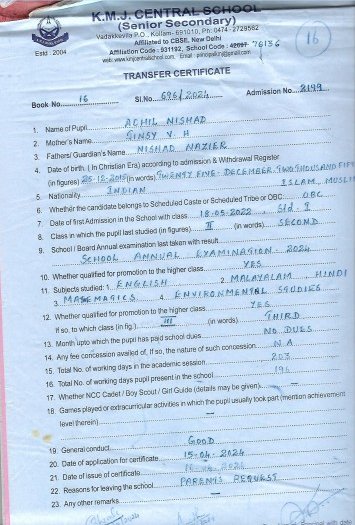 K.M.J. CENTRAL SCHOOL
(Senior Secondary)
Vadakkevila P.O., Kollam- 691010, Ph: 0474 - 2729582
Affiliated to CBSE, New Delhi
Affiliation Code : 931192, School Code : 76136
Estd : 2004
16
TRANSFER CERTIFICATE
Book No. 16 Sl.No. 696/2024 Admission No. 8149
1. Name of Pupil ACHIL NISHAD
2. Mother's Name JINSY V H
3. Fathers/ Guardian's Name NISHAD NAZIER
4. Date of birth ( In Christian Era) according to admission & Withdrawal Register
(in figures) 25-12-2015 (in words) TWENTY FIVE - DECEMBER, TWO THOUSAND FIF
5. Nationality INDIAN ISLAM, MUSLIM
6. Whether the candidate belongs to Scheduled Caste or Scheduled Tribe or OBC: OBC
7. Date of first Admission in the School with class 18-05-2022, Std. I
8. Class in which the pupil last studied (in figures) II (in words) SECOND
9. School / Board Annual examination last taken with result
SCHOOL ANNUAL EXAMINATION - 2024
10. Whether qualified for promotion to the higher class YES
11. Subjects studied: 1. ENGLISH 2. MALAYALAM HINDI
3. MATHEMAGICS 4. ENVIRONMENTAL STUDIES
12. Whether qualified for promotion to the higher class YES
If so, to which class (in fig.) III (in words) THIRD
13. Month upto which the pupil has paid school dues NO DUES
14. Any fee concession availed of, If so, the nature of such concession N.A
15. Total No. of working days in the academic session 203
16. Total No. of working days pupil present in the school 196
17. Whether NCC Cadet / Boy Scout / Girl Guide (details may be given) —
18. Games played or extracurricular activities in which the pupil usually took part (mention achievement
level therein) —
19. General conduct GOOD
20. Date of application for certificate 15-04-2024
21. Date of issue of certificate
22. Reasons for leaving the school PARENTS REQUEST
23. Any other remarks —